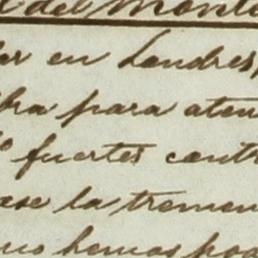 del Monte
er en Londres,
ha para aten
fuertes contr
ase la tremen
hemos pod